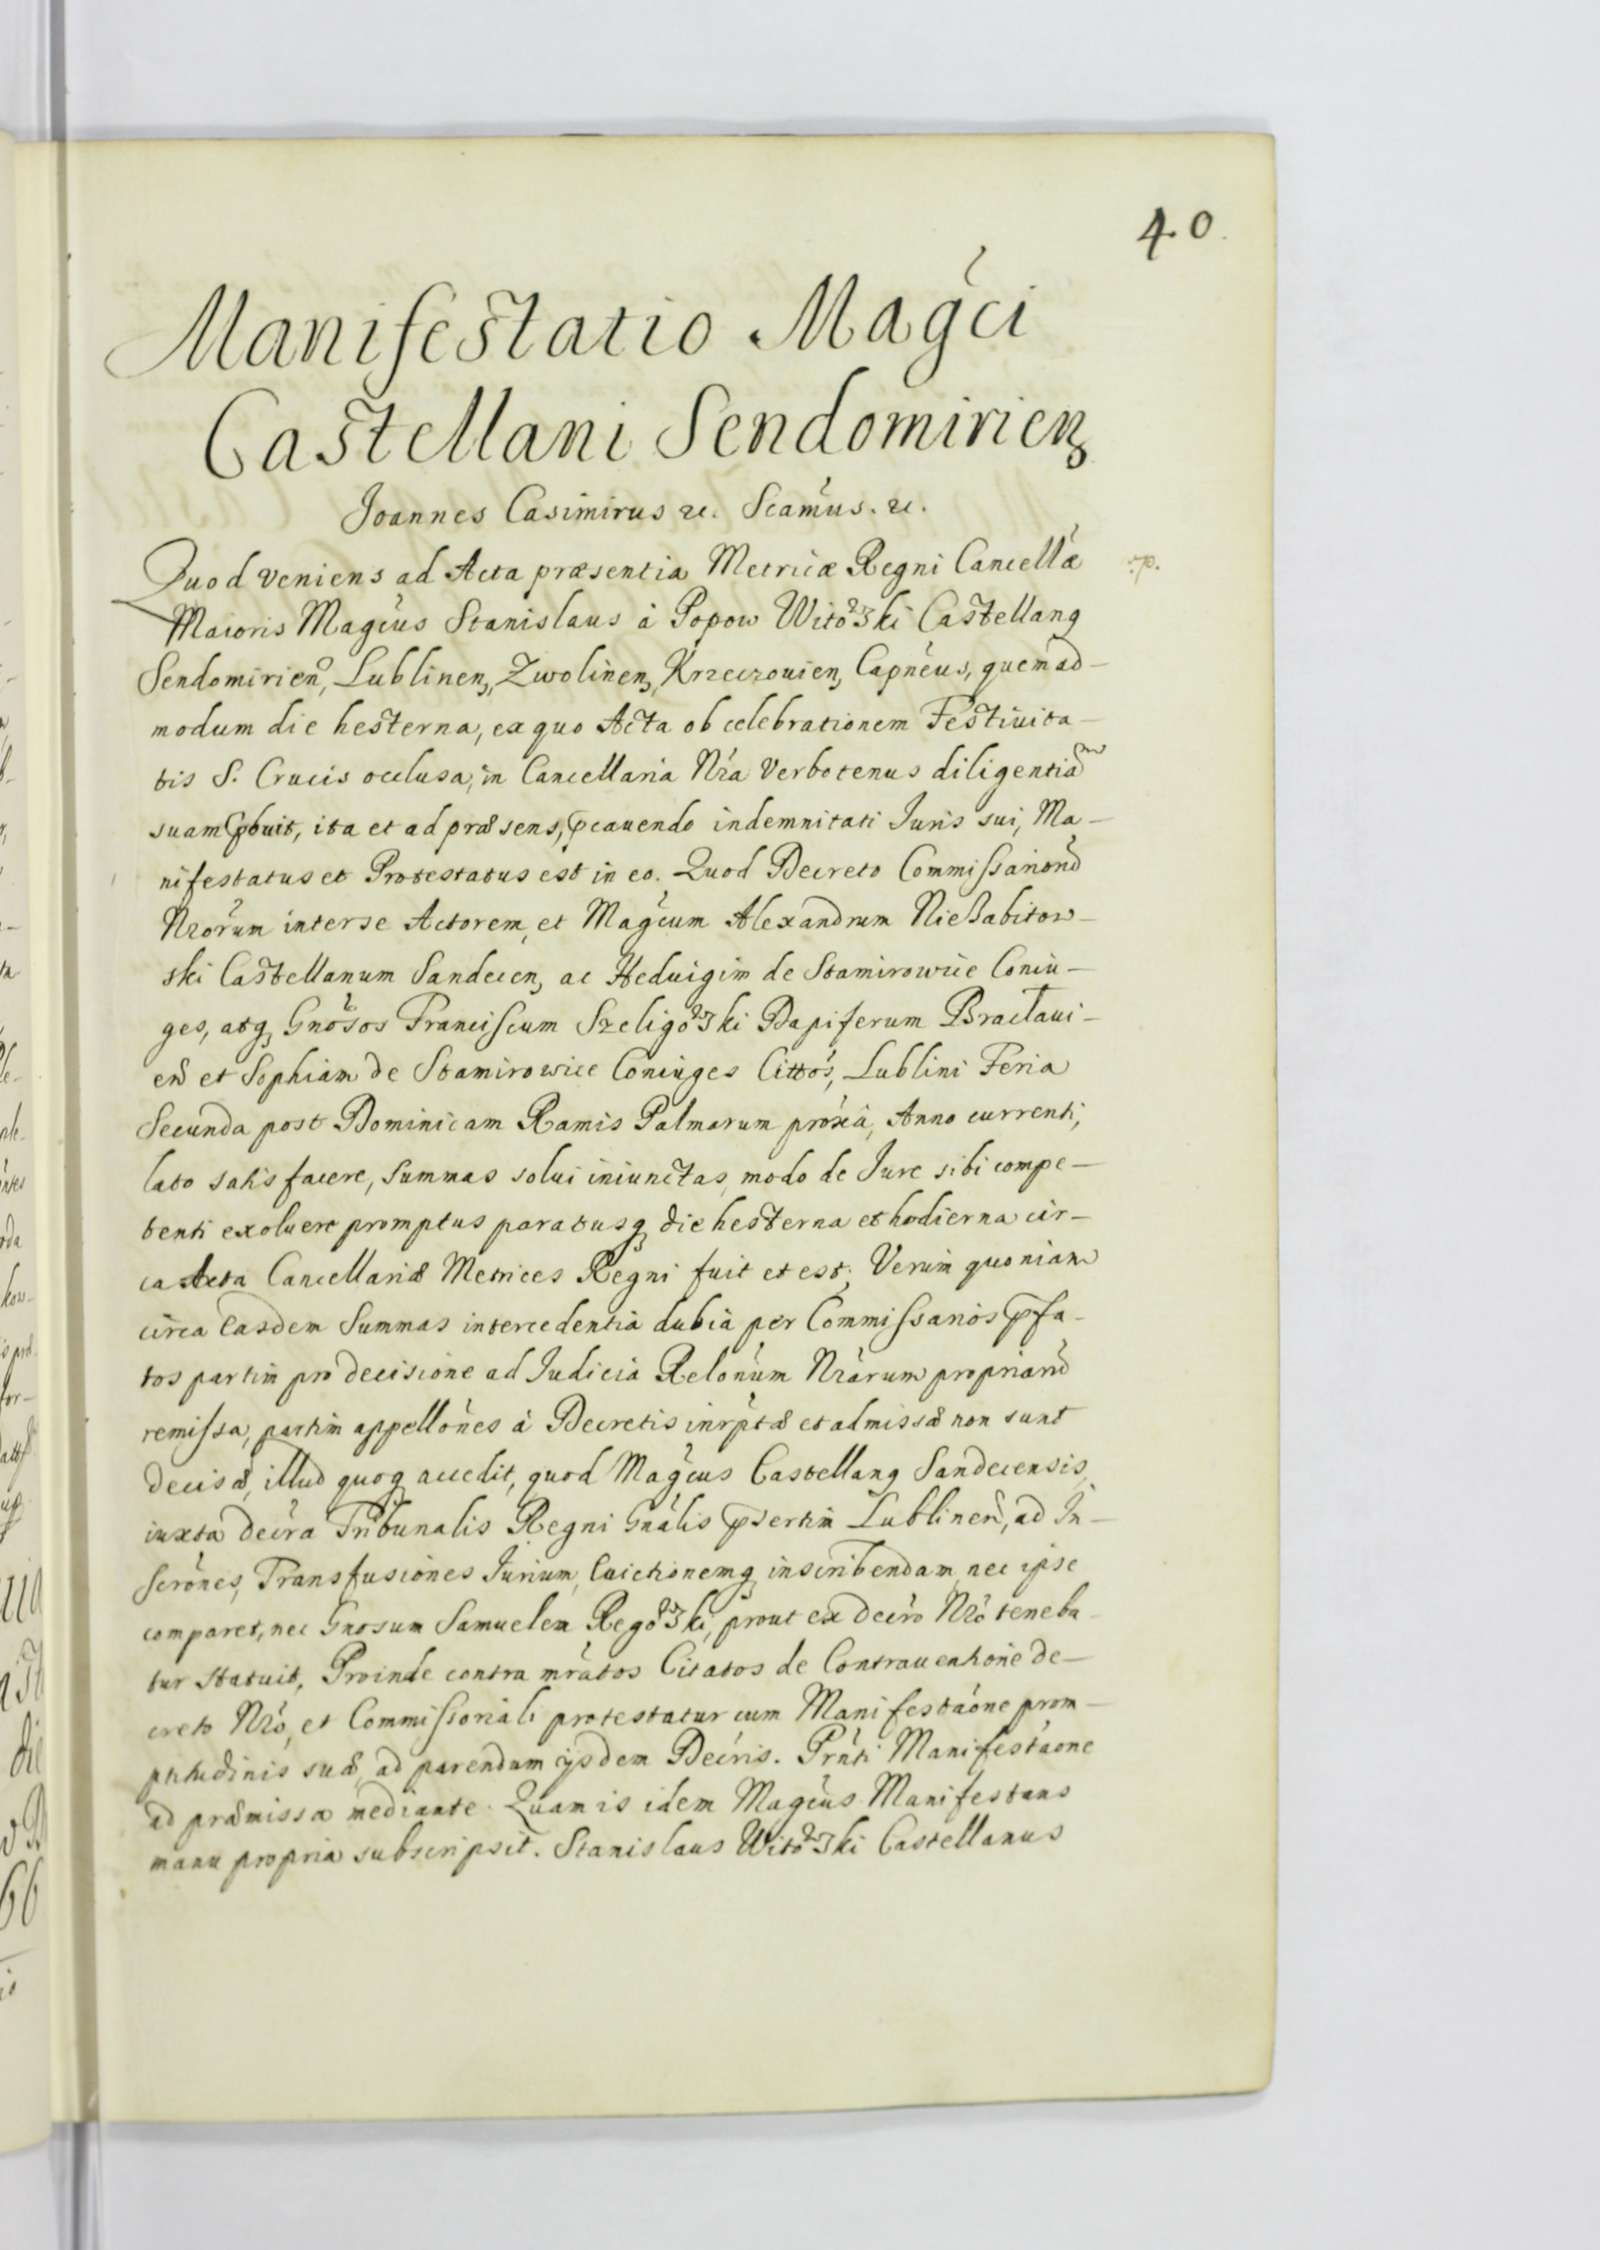 40
Manifestatio Mag̃ci
Castellani Sendomirienȝ
Joannes Casimirus ꝛc. Scam̃us. ꝛc.
Quod veniens ad Acta præsentia Metricæ Regni Cancellæ̃ :p.
Maioris Mag̃cus Stanislaus à Popow Witowski Castellanꝯ
Sendomirien̄, Lublinenȝ, Zwolinenȝ, Krzeczouienȝ Capñeus, quemad-
modum die hesterna, ex quo Acta ob celebrationem Festiuita-
tis S. Crucis occlusa, in Cancellaria Nr̃a Verbotenus diligentiam
suam ꝓbuit, ita et ad præsens, ꝓcauendo indemnitati Juris sui, Ma-
nifestatus et Protestatus est in eo. Quod Decreto Commissarion̄
Nrõrum inter se Actorem, et Mag̃cum Alexandrum Nieszabitow-
ski Castellanum Sandecenȝ ac Heduigim de Stamirowice Coniu-
ges, atqȝ Gnõsos Franciscum Szeligowski Dapiferum Bracłaui-
en̄ et Sophiam de Stamirowice Coniuges Cittõs, Lublini Feria
Secunda post Dominicam Ramis Palmarum prõxa, Anno currenti,
lato satisfacere, summas solui iniunctas, modo de Jure sibi compe-
tenti exoluere promptus paratusqȝ die hesterna et hodierna cir-
ca Acta Cancellariæ Metrices Regni fuit et est, Verum quoniam
circa easdem Summas intercedentia dubia per Commissarios p̄fa-
tos partim pro decisione ad Judicia Relõnum Nrãrum propriar̄
remissa, partim appellõnes à Decretis inr̃ptæ et admissæ non sunt
decisæ, illud quoqȝ accedit, quod Mag̃cus Castellanꝯ Sandecensis,
iuxta decr̃a Tribunalis Regni Gnãlis p̄sertim Lublinen̄, ad In-
scrõnes, Transfusiones Jurium, Euictionemqȝ inscribendam, nec ipse
comparet, nec Gnosum Samuelem Regowski, prout ex decr̃o Nrõ teneba-
tur statuit, Proinde contra mrãtos Citatos de Contrauentione de-
creto Nrõ, et Commissoriali protestatur cum Manifestaõne prom-
ptitudinis suæ, ad parendum ijsdem Decr̃is. Prñti Manifestaõne
ad præmissa mediante. Quam is idem Mag̃cus Manifestans
manu propria subscripsit. Stanislaus Witowski Castellanus